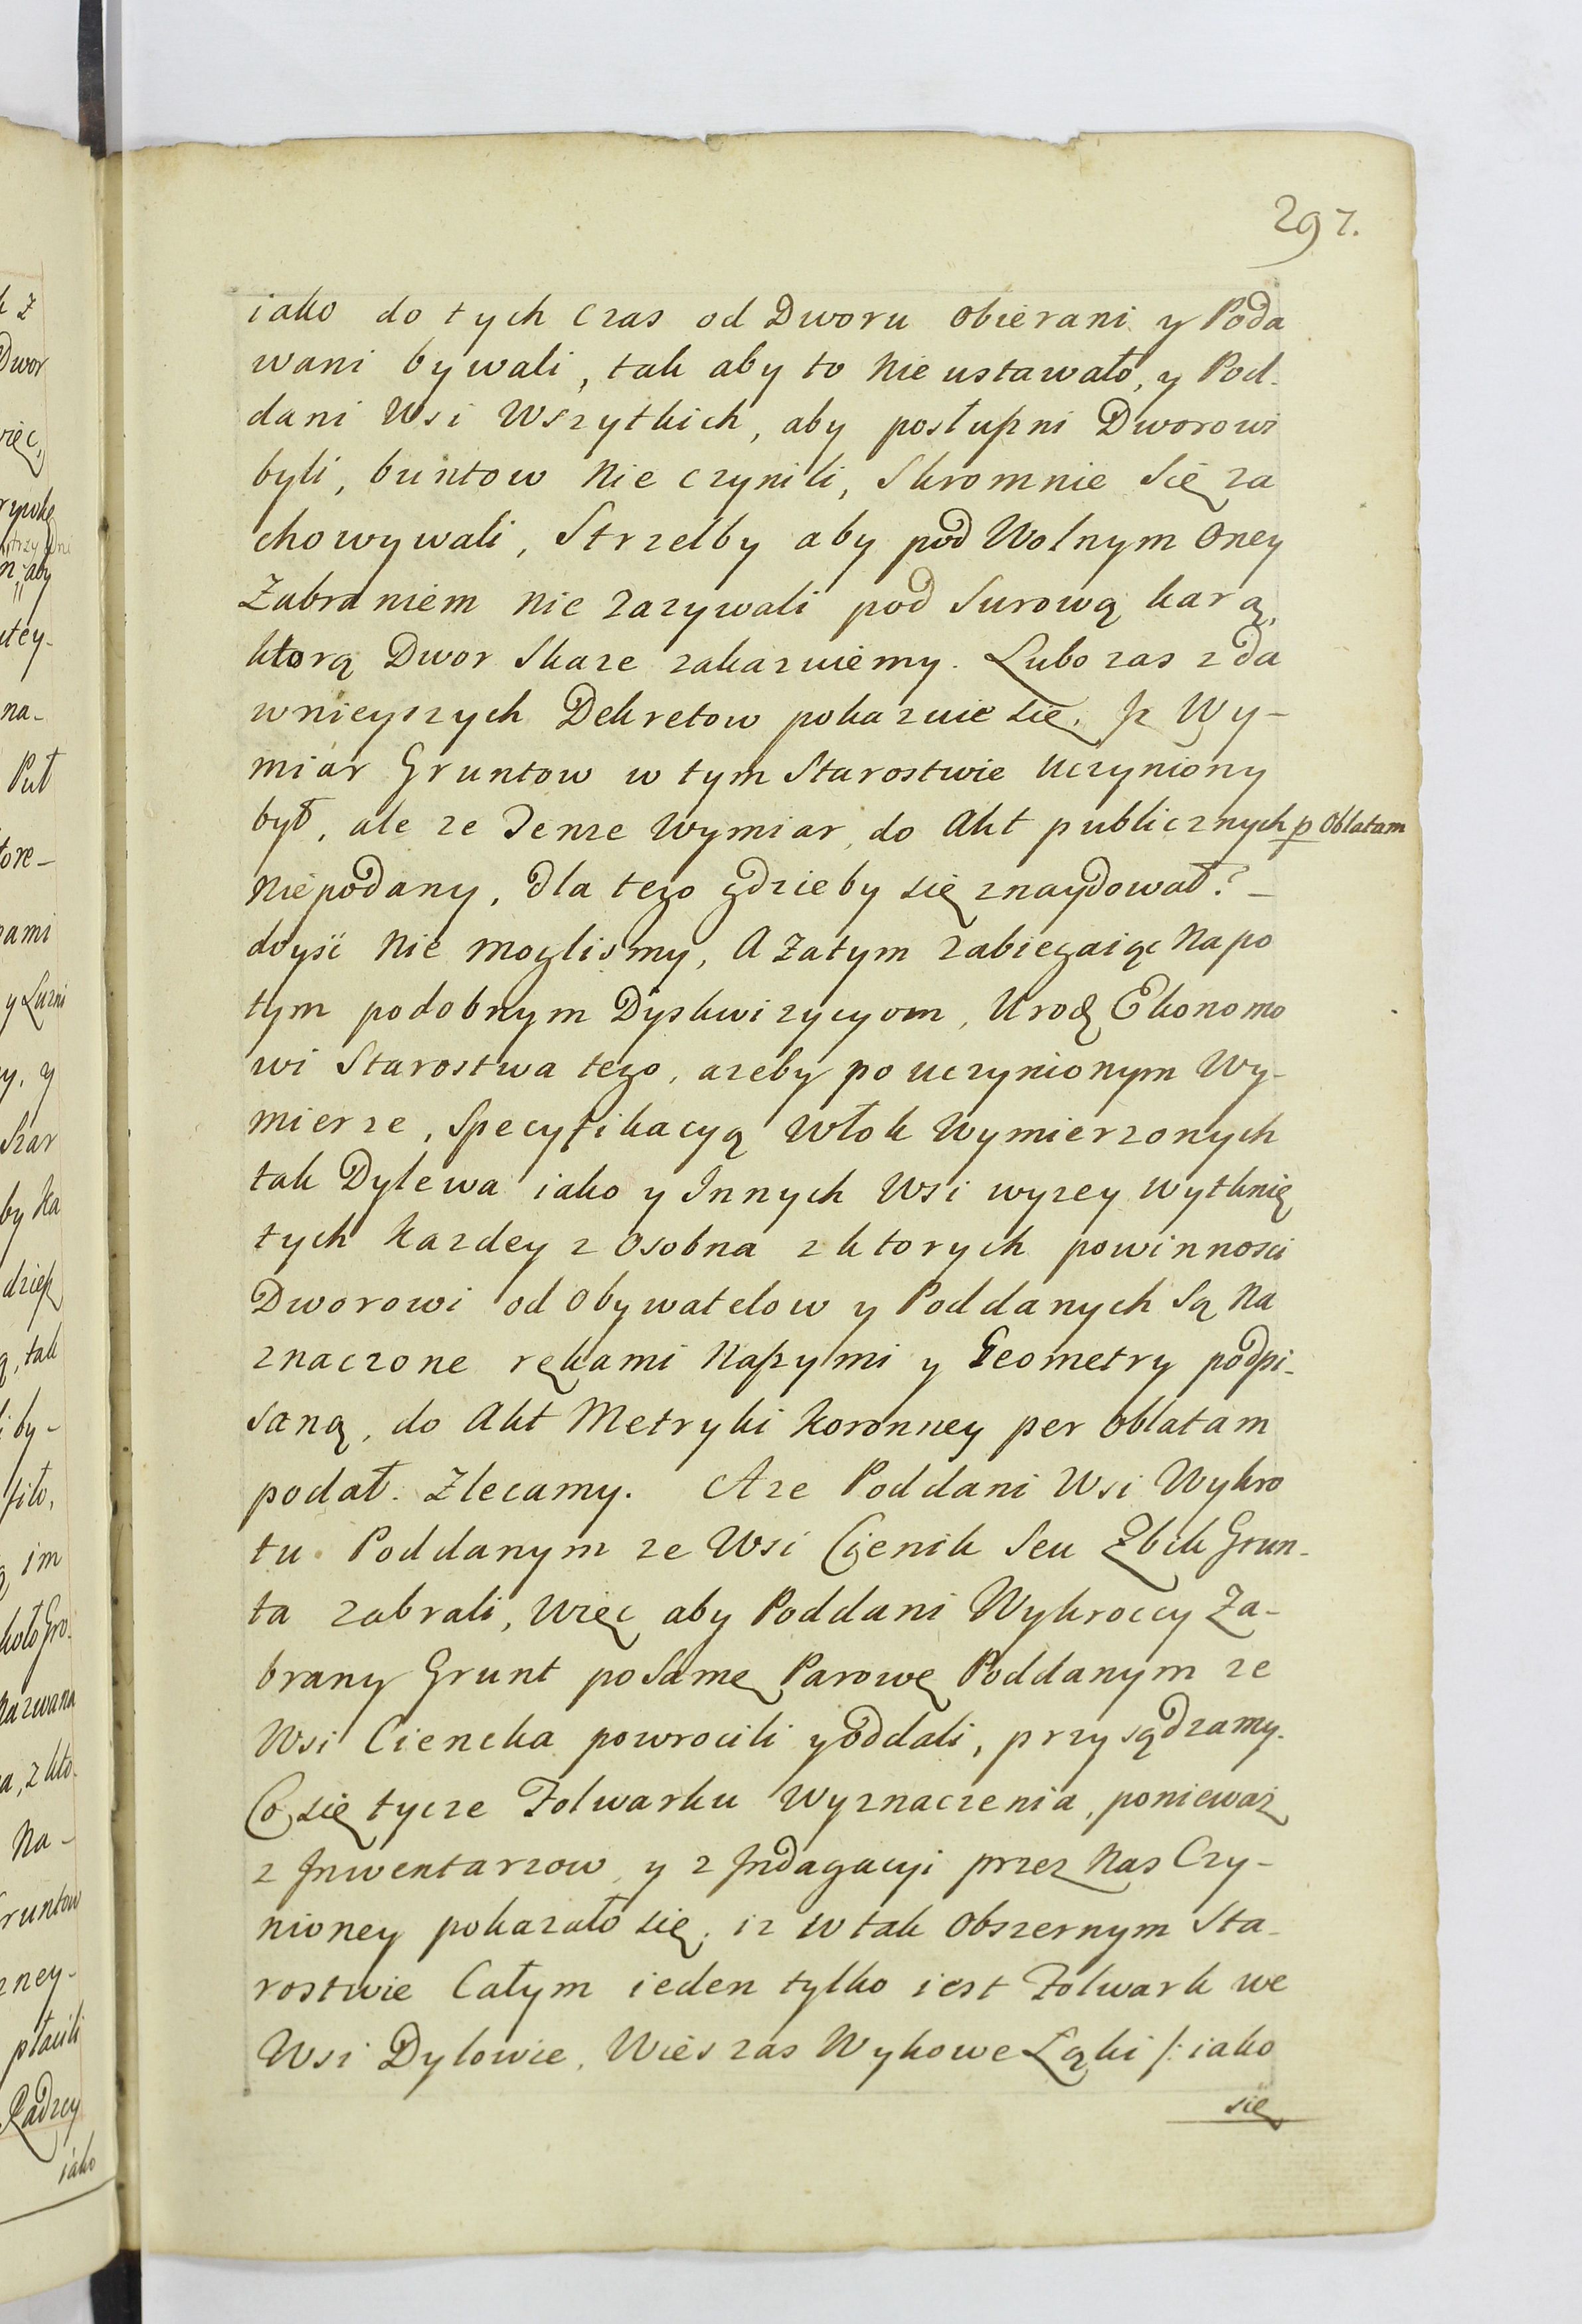 297.
iako do tych czas od Dworu obierani y Poda
wani bywali, tak aby to nie ustawało, y Pod-
dani Wsi Wszytkich, aby posłuszni Dworowi
byli, buntow nie czynili, skromnie się za
chowywali, Strzelby aby pod Wolnym oney
Zabraniem nie zazywali pod surową karą,
ktorą Dwor skaze zakazuiemy. Lubo zas z da
wnieyszych Dekretow pokazuie się, Iz Wy-
miar Gruntow w tym Starostwie uczyniony
był, ale ze Tenze wymiar, do Akt publicznych p Oblatam
niepodany, dla tego gdzieby się znaydował? -
doysć nie moglismy, A Zatym zabiegaiąc napo
tym podobnym Dyskwizycyom, Urodz Ekonomo
wi Starostwa tego, azeby po uczynionym Wy-
mierze, specyfikacyą Włok Wymierzonych
tak Dylewa iako y Innych Wsi wyzey wytknię
tych kazdey z osobna z ktorych powinnosci
Dworowi od Obywatelow y Poddanych są na
znaczone rękami naszymi y Geometry podpi-
saną, do Akt Metryki Koronney per oblatam
podał. Zlecamy. A ze Poddani Wsi Wykro
tu Poddanym ze Wsi Cienik seu Zbik Grun-
ta zabrali, więc aby Poddani Wykroccy Za-
brany Grunt po samę Parowę Poddanym ze
Wsi Ciencka powrocili y oddali, przysądzamy.
Co się tycze Folwarku wyznaczenia, poniewaz
z Inwentarzow, y z Indagacyi przez nas Czy-
nioney pokazało się, iz w tak obszernym Sta-
rostwie całym ieden tylko iest Folwark we
Wsi Dylowie, Wies zas Wykowe Łąki /: iako
się